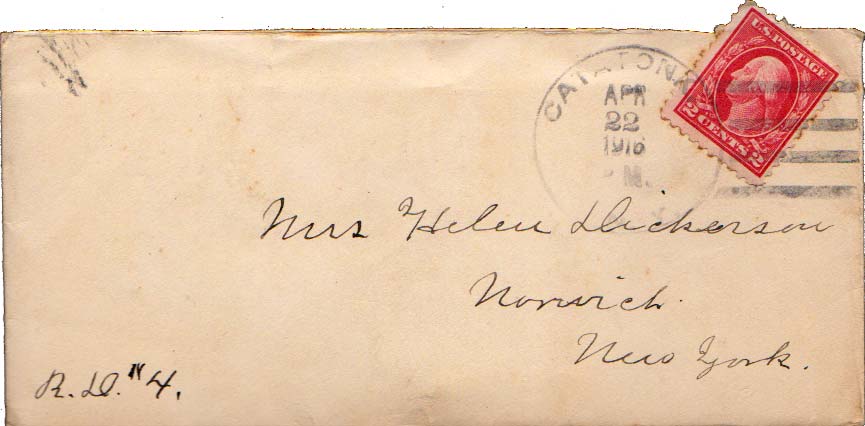 U.S. POSTAGE
2 CENTS 2
CATATON
APR
22
1916
M.
Mrs Helen Dickerson
Norwich.
New York.
R.D. "4.